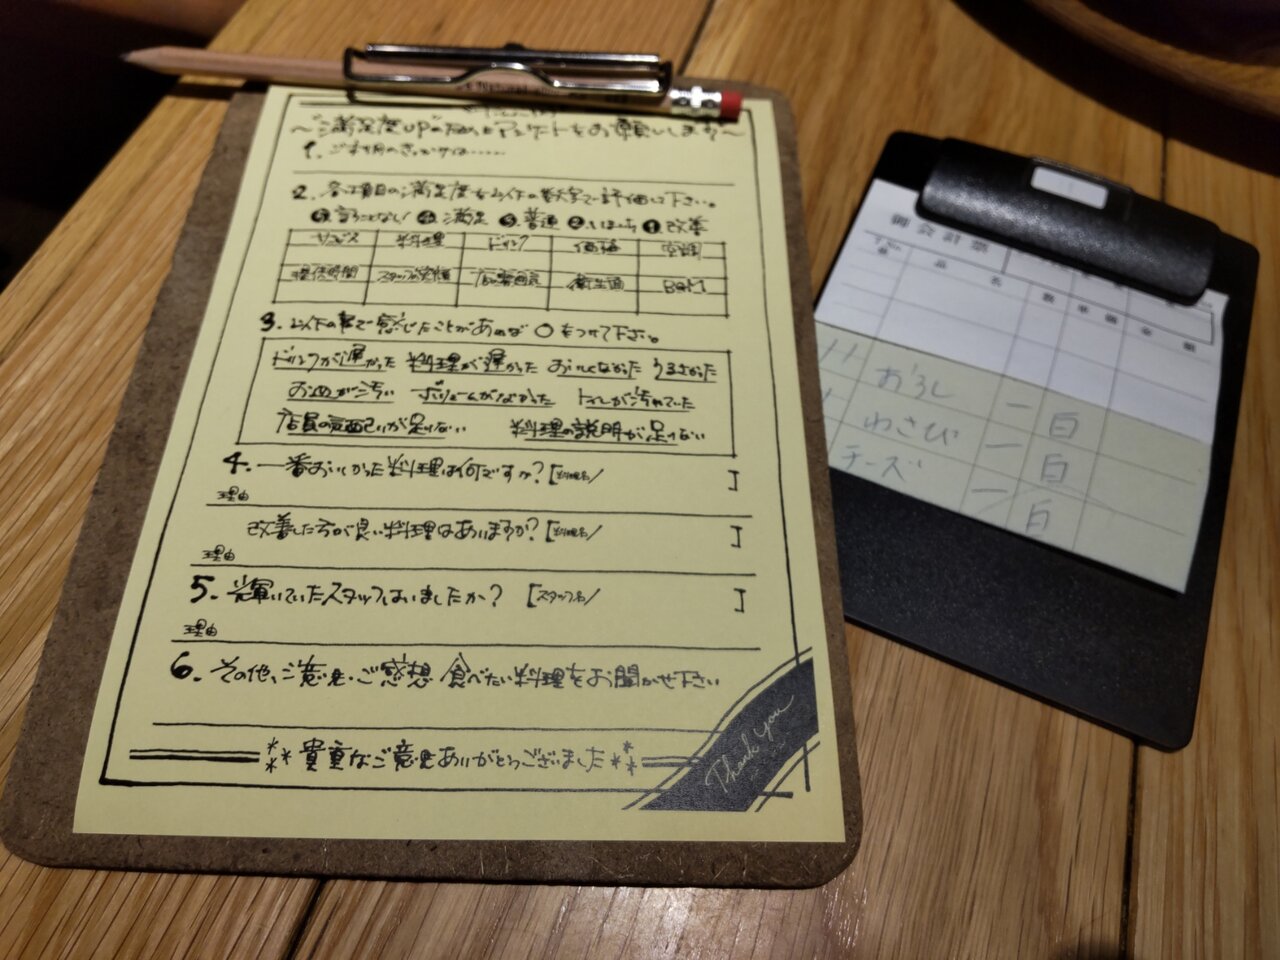 ～"満足度UP"のためにアンケートをお願いします～
1. ご利用のきっかけは……
2. 各項目の満足度を以下の数字で評価して下さい。
❺言うことなし! ❹満足 ❸普通 ❷いまいち ❶改善
サービス 料理 ドリンク 価格 空間
提供時間 スタッフの笑顔 店の雰囲気 衛生面 BGM
3. 以下の事で感じたことがあれば○をつけて下さい。
ドリンクが遅かった 料理が遅かった おいしくなかった うるさかった
お皿が汚い ボリュームがなかった トイレが汚れていた
店員の気配りが足りない 料理の説明が足りない
4. 一番おいしかった料理は何ですか?[料理名/ ]
理由
改善した方が良い料理はありますか?[料理名/ ]
理由
5. 輝いていたスタッフはいましたか? [スタッフ名/ ]
理由
6. その他、ご意見・ご感想 食べたい料理をお聞かせ下さい
*** 貴重なご意見ありがとうございました ***
Thank you
御会計票
品 名 数 単価 金 額
おろし 一 白
わさび 一 白
チーズ 一 白